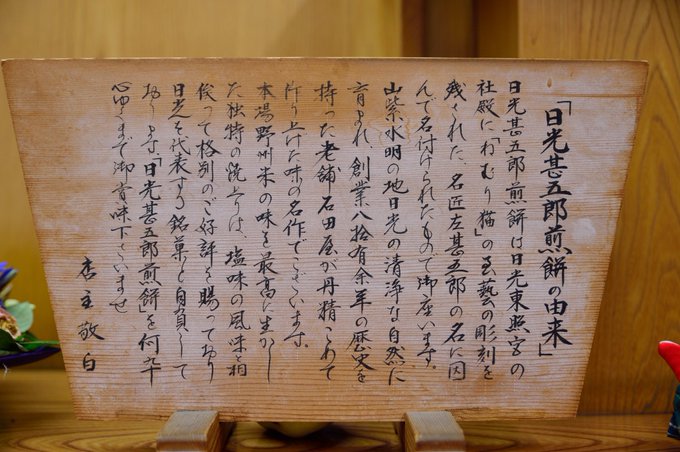 「日光甚五郎煎餅の由来」
日光甚五郎煎餅は日光東照宮の
社殿に「ねむり猫」の至藝の彫刻を
残された、名匠左甚五郎の名に因
んで名付けられたもので御座います。
山紫水明の地日光の清浄な自然に
育まれ、創業八拾有余年の歴史を
持った老舗石田屋が丹精こめて
作り上げた味の名作でございます。
本場野州米の味を最高に生かし
た独特の焼上りは、塩味の風味と相
俟って格別のご好評を賜っており
日光を代表する銘菓と自負して
おります、「日光甚五郎煎餅」を何卒
心ゆくまで御賞味下さいませ
店主敬白